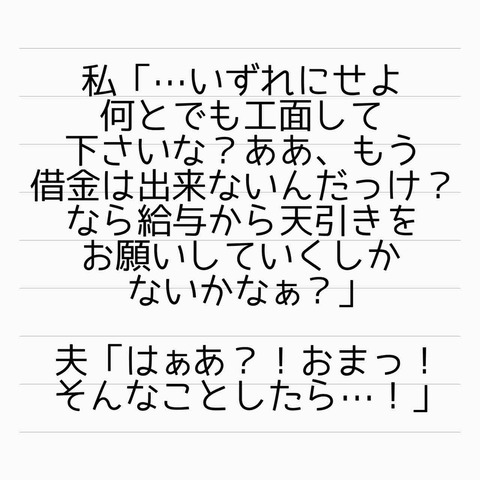 私「…いずれにせよ
何とでも工面して
下さいな？ああ、もう
借金は出来ないんだっけ？
なら給与から天引きを
お願いしていくしか
ないかなぁ？」
夫「はぁあ？！おまっ！
そんなことしたら…！」